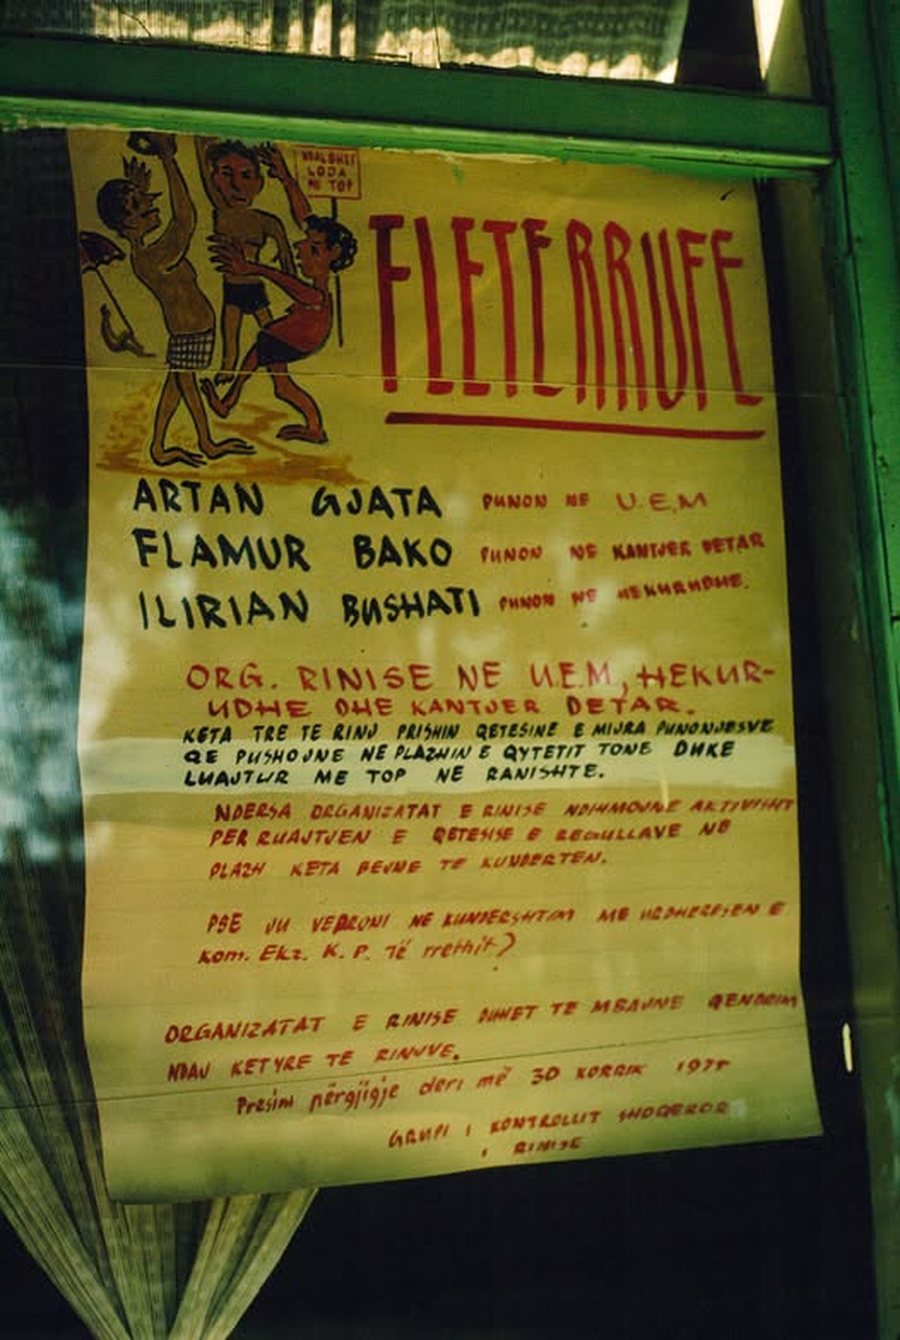 NDALOHET
LOJA
ME TOP
FLETERRUFE
ARTAN GJATA PUNON NE U.E.M
FLAMUR BAKO PUNON NE KANTJER DETAR
ILIRIAN BUSHATI PUNON NE HEKURUDHE.
ORG. RINISE NE U.E.M, HEKUR-
UDHE DHE KANTJER DETAR.
KETA TRE TE RINJ PRISHIN QETESINE E MIJRA PUNONJESVE
QE PUSHOJNE NE PLAZHIN E QYTETIT TONE DUKE
LUAJTUR ME TOP NE RANISHTE.
NDERSA ORGANIZATAT E RINISE NDIHMOJNE AKTIVISHT
PER RUAJTJEN E QETESISE E REGULLAVE NE
PLAZH KETA BEJNE TE KUNDERTEN.
PSE JU VEPRONI NE KUNDERSHTIM ME URDHERESEN E
Kom. Ekz. K. P. Të rrethit?
ORGANIZATAT E RINISE DUHET TE MBAJNE QENDRIM
NDAJ KETYRE TE RINJVE.
Presim përgjigje deri më 30 KORRIK
GRUPI I KONTROLLIT SHOQEROR
I RINISE